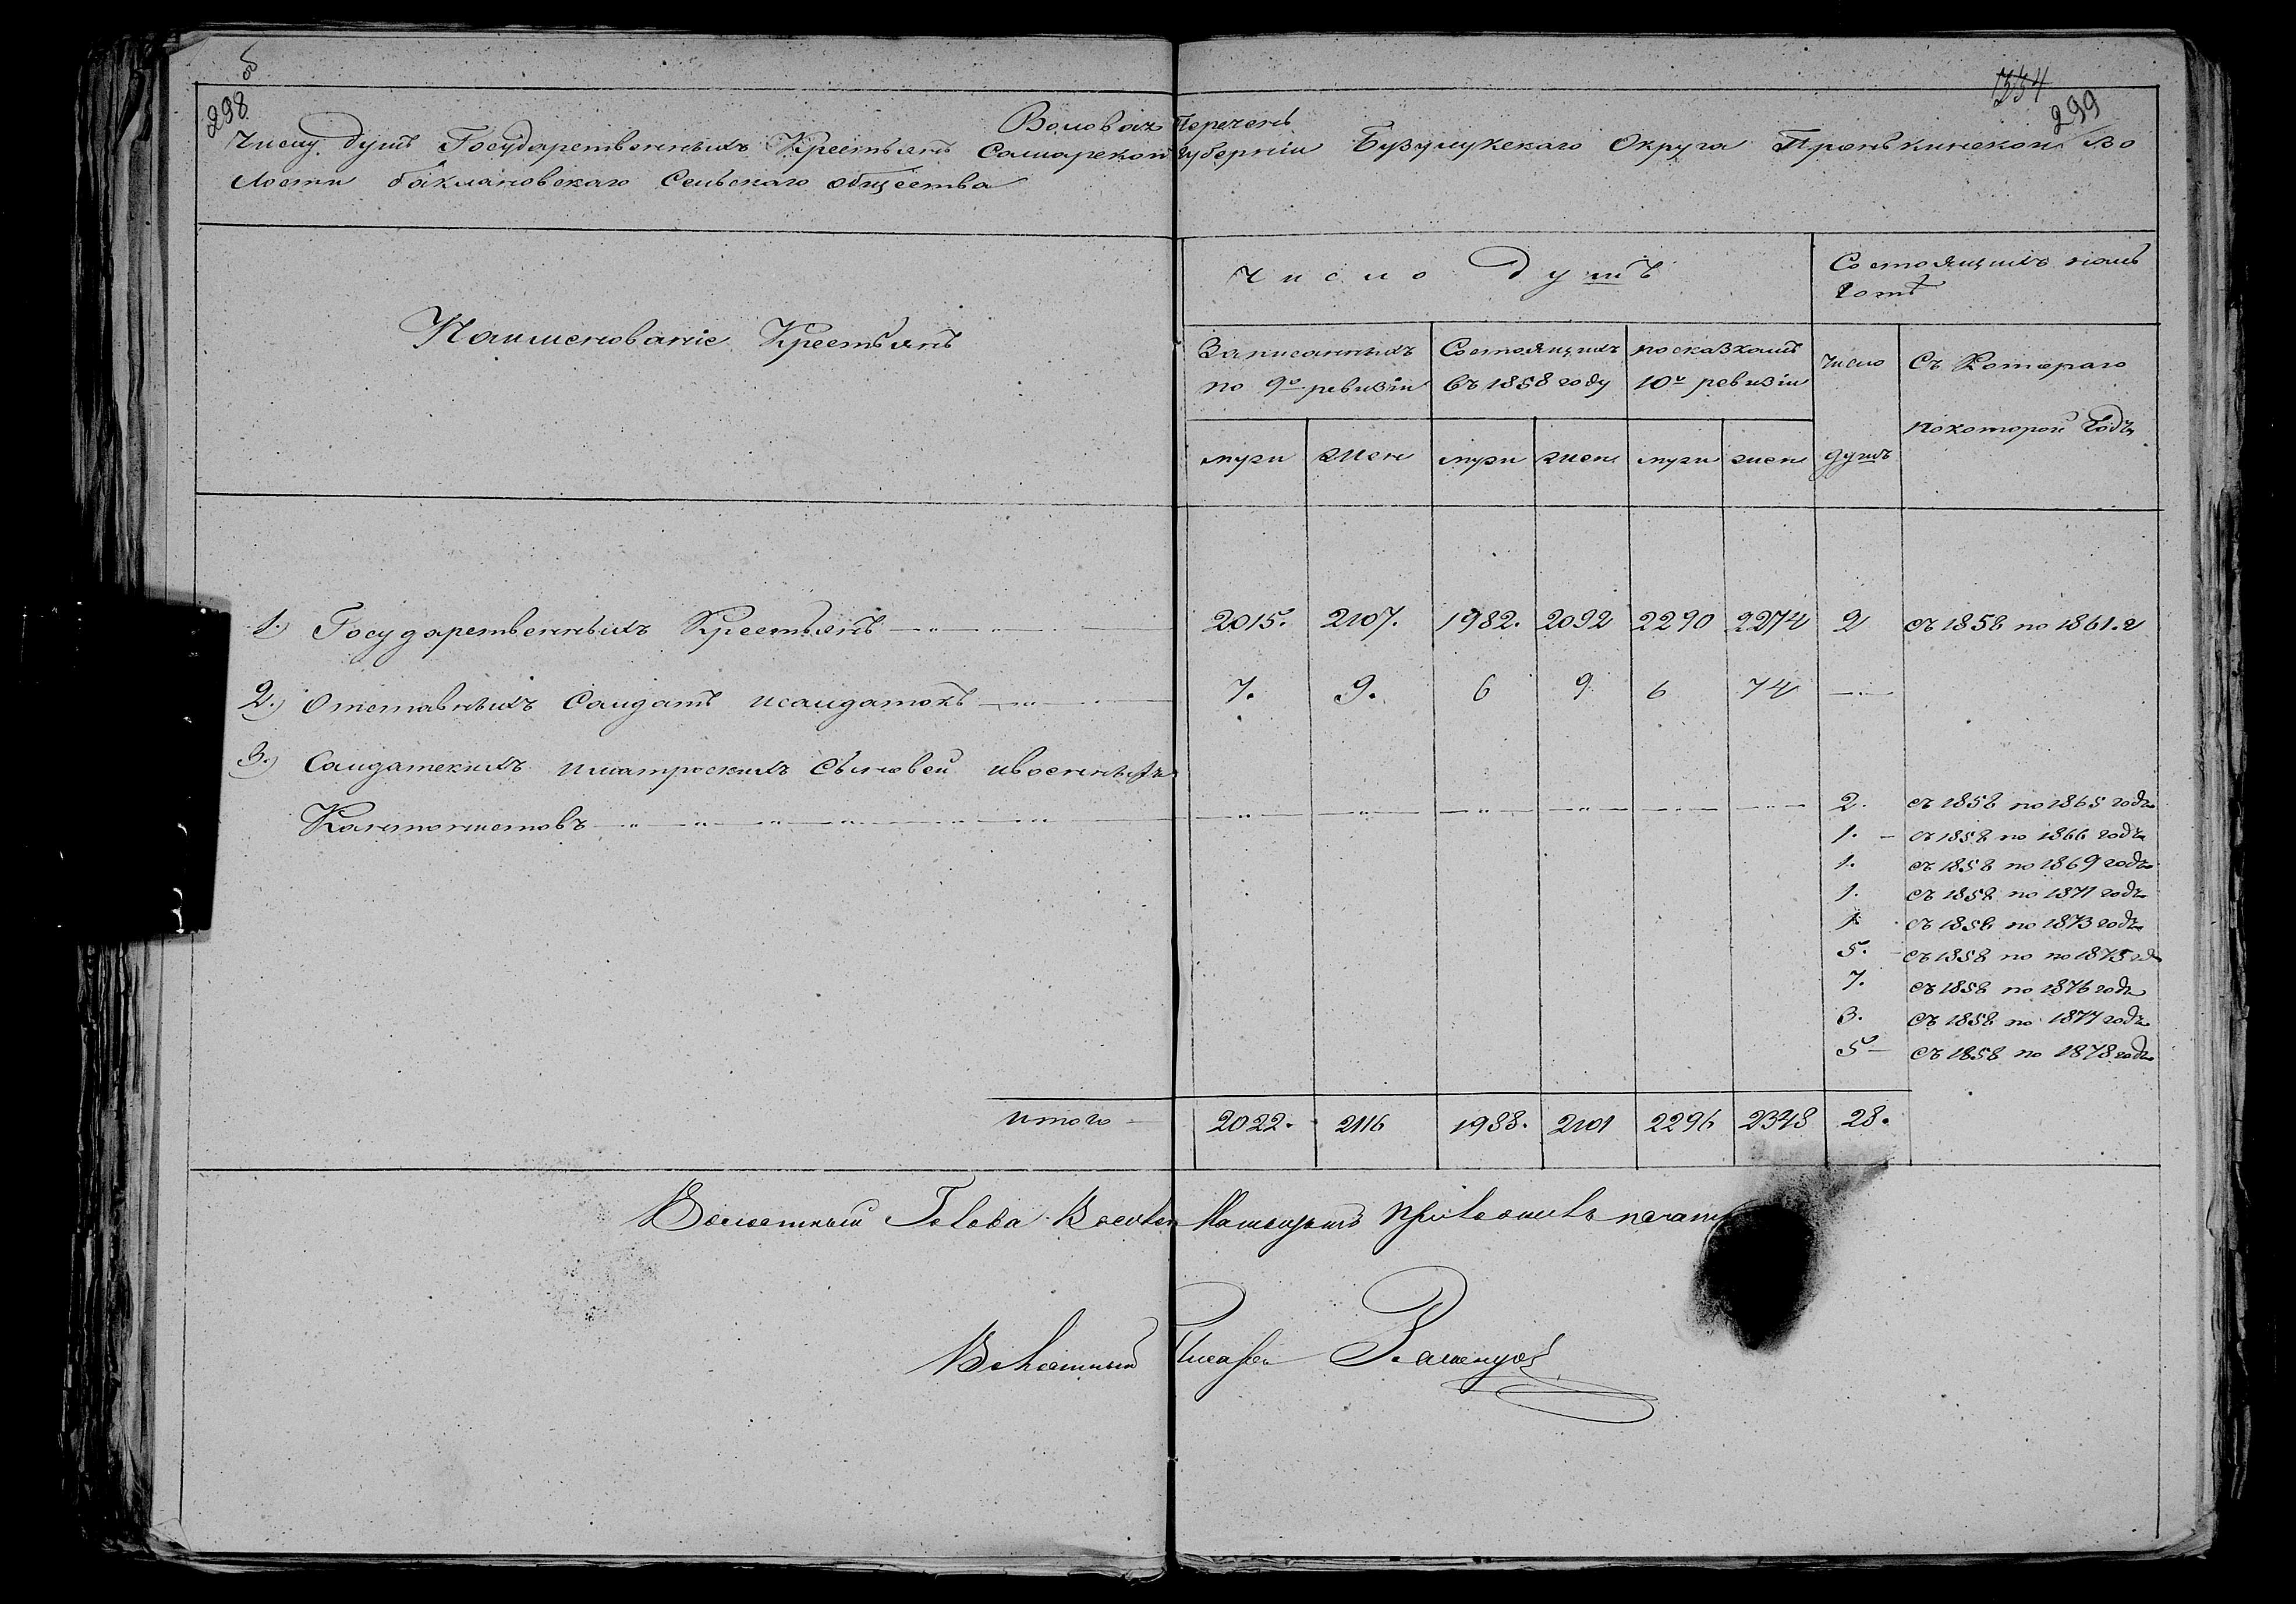 298 об
334
299
Валовая Перечень
Числу душъ Государственныхъ Крестьянъ Самарской Губерніи Бузулукскаго Округа Пронькинской Во
лости баклановскаго Сельскаго общества
Наименованіе Крестьянъ
Число душъ
Состоящихъ на ль
готѣ
Записанныхъ по 9й ревизіи
Состоящихъ въ 1858 году
по сказкамъ 10й ревизіи
число душъ
Съ Котораго по которой Годъ
муж жен муж жен муж жен
1.) Государственныхъ Крестьянъ 2015. 2107. 1982. 2092 2290 2274 2 съ 1858 по 1861. г
2.) Отставныхъ Салдатъ и салдатокъ 7. 9. 6 9 6 74
3.) Салдатскихъ и матроскихъ сыновей и военныхъ
Кантонистовъ 2. съ 1858 по 1865 годъ
1. съ 1858 по 1866 годъ
1. съ 1858 по 1869 годъ
1. съ 1858 по 1871 годъ
1. съ 1858 по 1873 годъ
5. съ 1858 по по 1875 год
7. съ 1858 по 1876 годъ
3. съ 1858 по 1877 годъ
5 съ 1858 по 1878 годъ
итого 2022. 2116 1988. 2101 2296 2348 28.
Волостный Голова приложилъ печать
Волостный Писарь